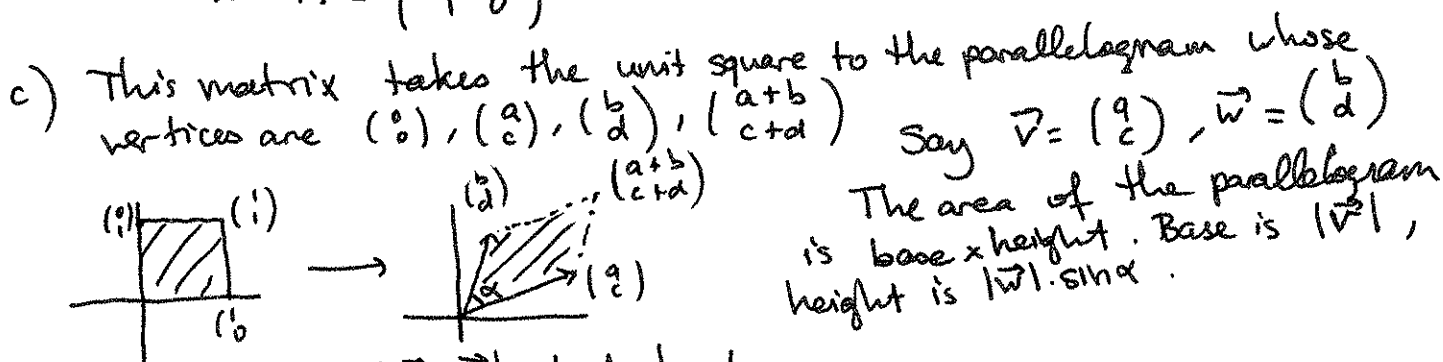 c) This matrix takes the unit square to the parallelogram whose
vertices are (0 0), (a c), (b d), (a+b c+d) Say v⃗ = (a c), w⃗ = (b d)
The area of the parallelogram
is base × height. Base is |v⃗|,
height is |w⃗|·sinα.
(0 1) (1 1)
(1 0
(b d) (a+b c+d)
α (a c)